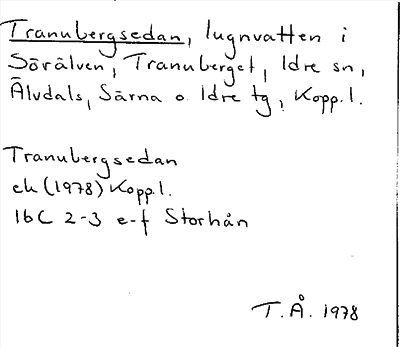 Tranubergsedan, lugnvatten i
Sörälven, Tranuberget, Idre sn,
Älvdals, Särna o Idre tg, Kopp.l.
Tranubergsedan
ek (1978) Kopp.l.
16C 2-3 e-f Storhån
T.Å. 1978